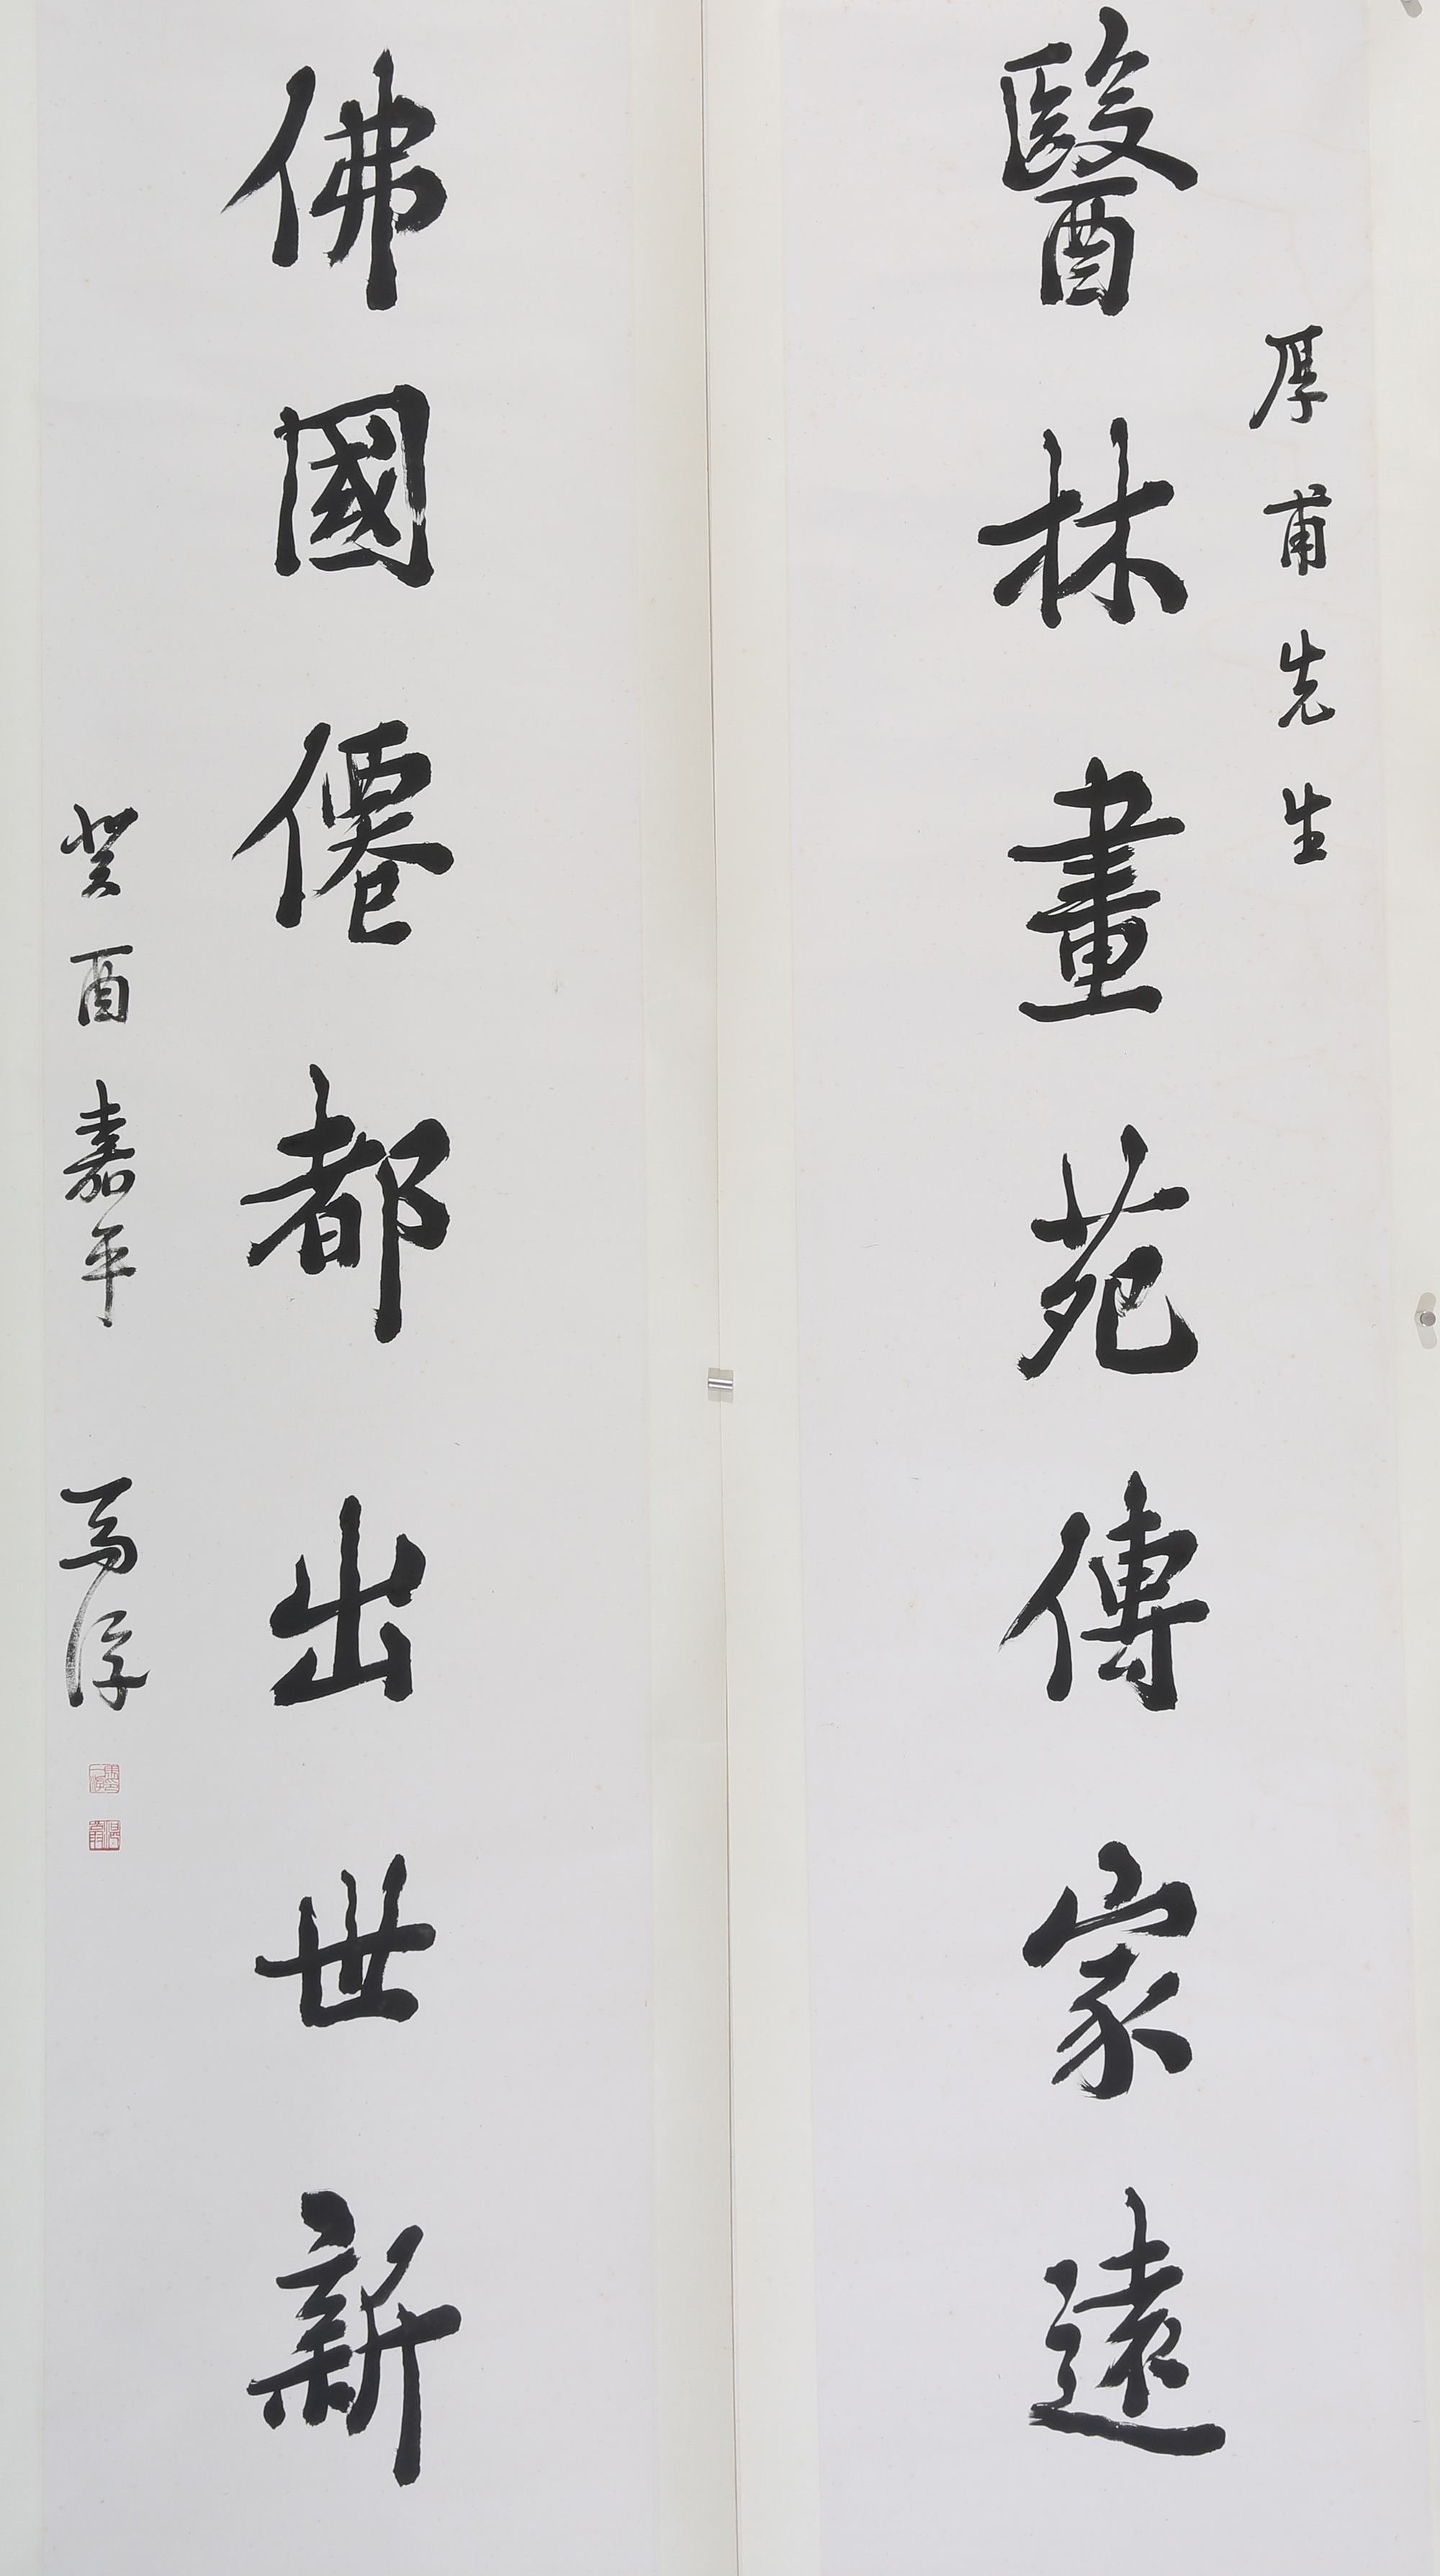 厚甫先生
醫林畫苑傳家遠
佛國僊都出世新
癸酉嘉平 馬浮